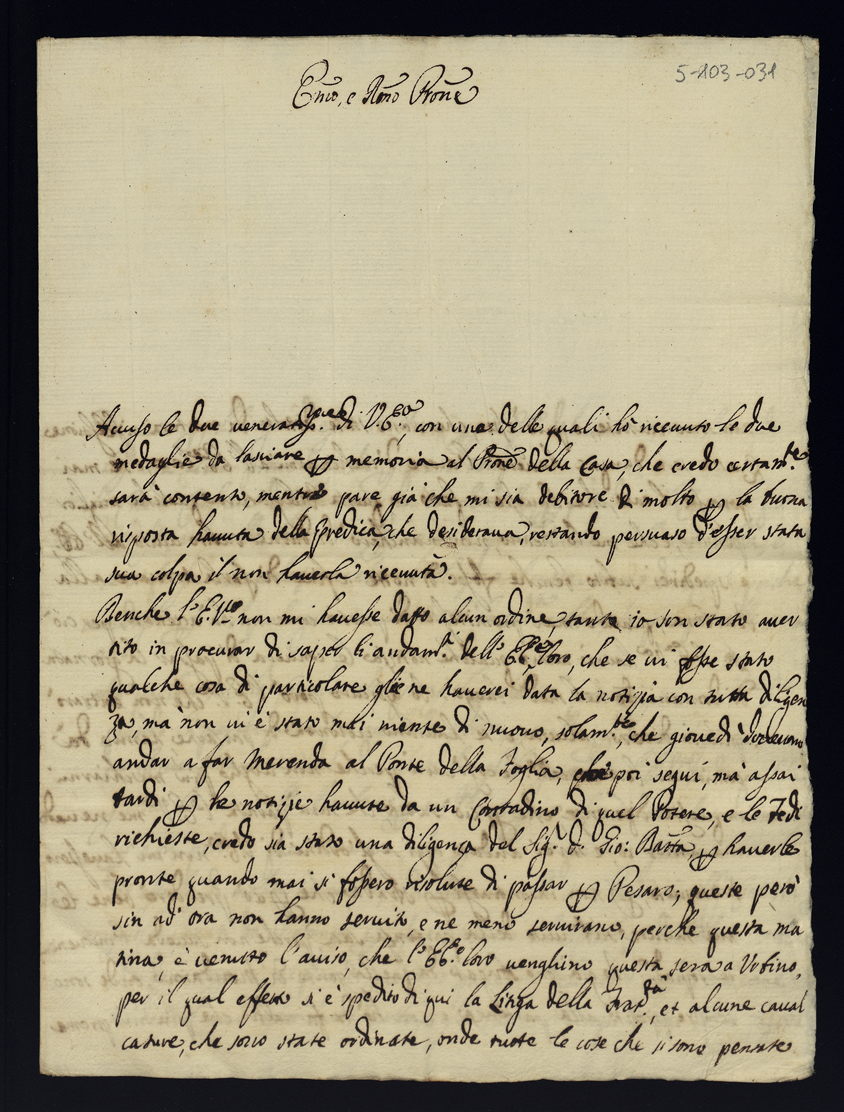 5-103-031
Emo, e Rmo Prone
Accuso le due veneratiss.e di V. E.a, con una delle quali hò riceuuto le due
medaglie da lasciare per memoria al Prone della Casa, che credo certam.te
sarà contento, mentre pare già che mi sia debitore di molto per la buona
risposta hauuta della predica, che desideraua, restando persuaso d'esser stata
sua colpa il non hauerla riceuuta.
Benche l'E. V.ra non mi hauesse datto alcun ordine, tanto io son stato auer
tito in procurar di saper li andam.ti dell'EE.e loro, che se ui fosse stato
qualche cosa di particolare gliene hauerei data la notizia con tutta diligen
za, mà non ui è stato mai niente di nuouo, solam.te, che giouedì doueuano
andar a far Merenda al Ponte della Foglia, che poi seguì, mà assai
tardi per le notizie hauute da un Contadino di quel Potere, e le Fedi
richieste, credo sia stato una diligenza del Sig.r D. Gio: Batta per hauerle
pronte quando mai si fossero risolute di passar per Pesaro; queste però
sin ad ora non hanno seruito, e ne meno seruirano, perche questa ma
tina, è venuto l'auiso, che l'EE.e loro venghino questa sera a Urbino,
per il qual effetto si è spedito di qui la Letiga della, et alcune caual
cature, che sono state ordinate, onde tutte le cose che si sono pensate